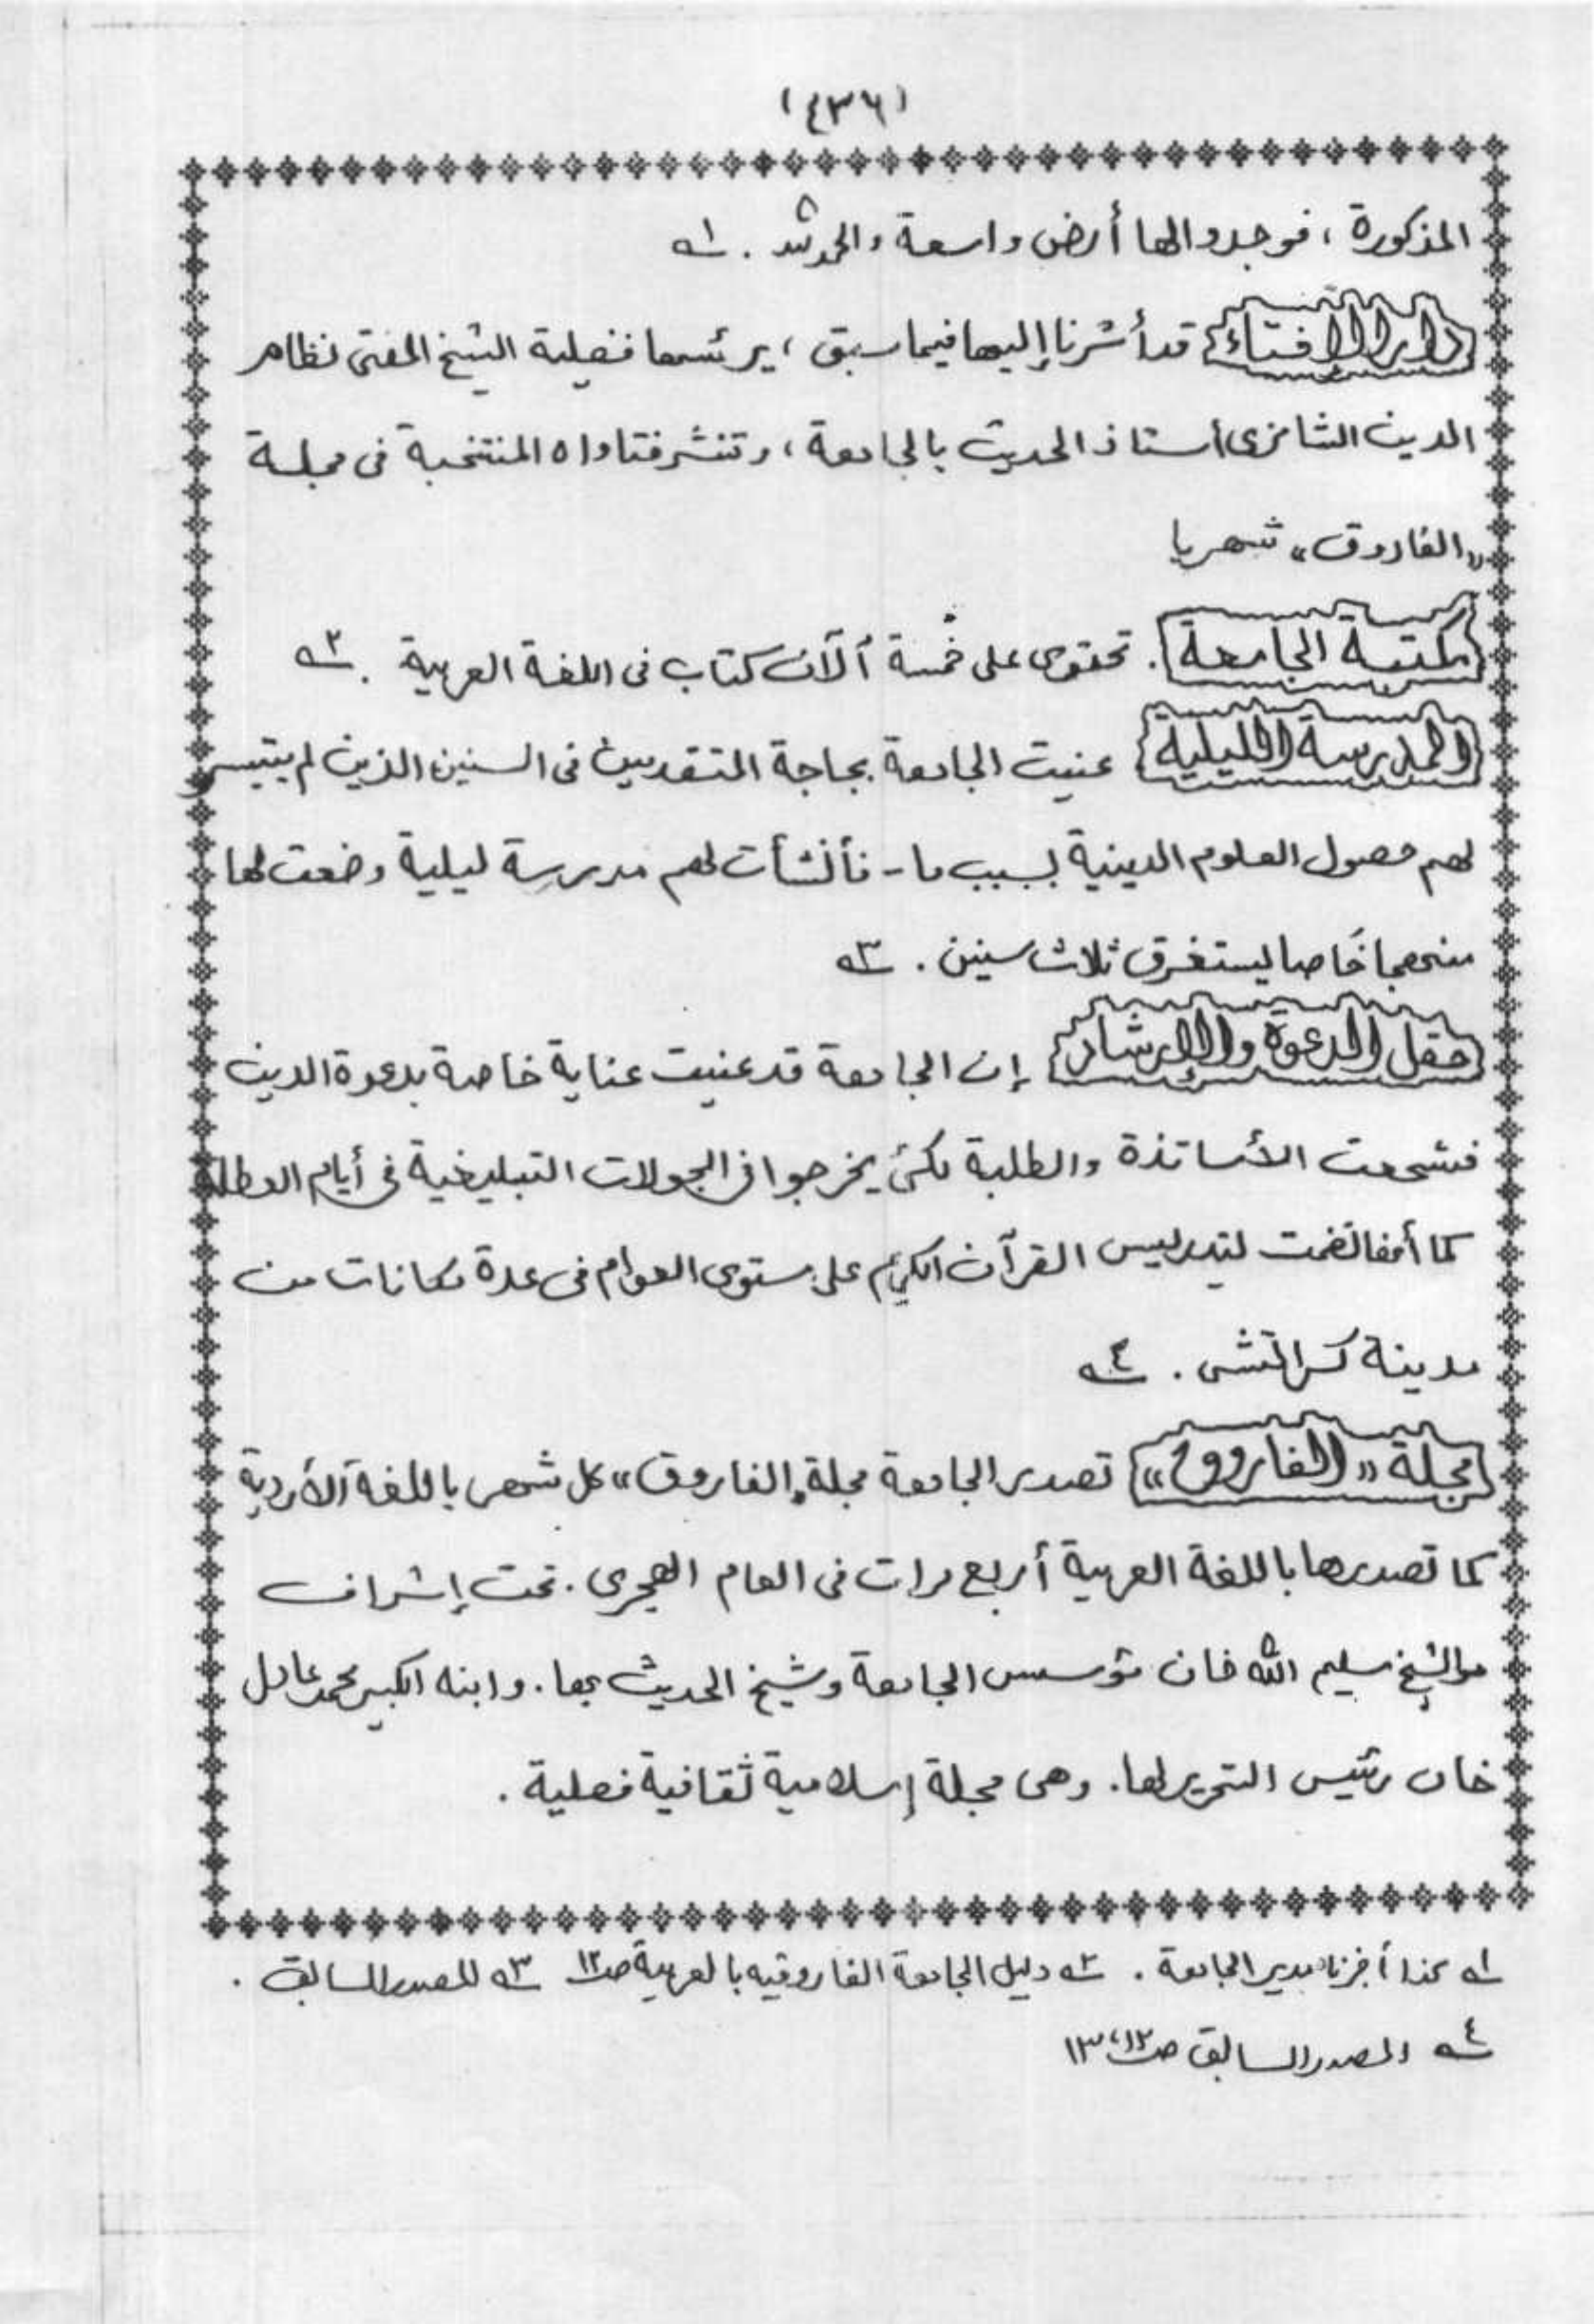 (٤٣٦)
المذكورة ، فوجدوا لها أرض واسعة والحمد لله . ١ـه
دار الإفتاء قد أشرنا إليها فيما سبق ، يرئسها فضيلة الشيخ المفتى نظام
الدين الشامزى أستاذ الحديث بالجامعة ، وتنشر فتاواه المنتخبة فى مجلة
«الفاروق» شهريا
مكتبة الجامعة . تحتوى على خمسة آلاف كتاب فى اللغة العربية . ٢ـه
المدرسة الليلية عنيت الجامعة بحاجة المتقدمين فى السنين الذين لم يتيسر
لهم حصول العلوم الدينية لسبب ما - فأنشأت لهم مدرسة ليلية وضعت لها
منهجا خاصا يستغرق ثلاث سنين . ٣ـه
حقل الدعوة والإرشاد إن الجامعة قد عنيت عناية خاصة بدعوة الدين
فشجعت الأساتذة والطلبة لكى يخرجوا فى الجولات التبليغية فى أيام العطلة
كما أنها نظمت لتدريس القرآن الكريم على مستوى العوام فى عدة مكانات من
مدينة كراتشى . ٤ـه
مجلة «الفاروق» تصدر الجامعة مجلة «الفاروق» كل شهر باللغة الأردية
كما تصدرها باللغة العربية أربع مرات فى العام الهجرى . تحت إشراف
الشيخ سليم الله خان مؤسس الجامعة وشيخ الحديث بها . وابنه الكبير محمد عادل
خان رئيس التحرير لها . وهى مجلة إسلامية ثقافية فصلية .
١ـه كذا أخبرنا مدير الجامعة . ٢ـه دليل الجامعة الفاروقيه بالعربية صـ١٢ ٣ـه المصدر السابق .
٤ـه المصدر السابق صـ١٢، ١٣